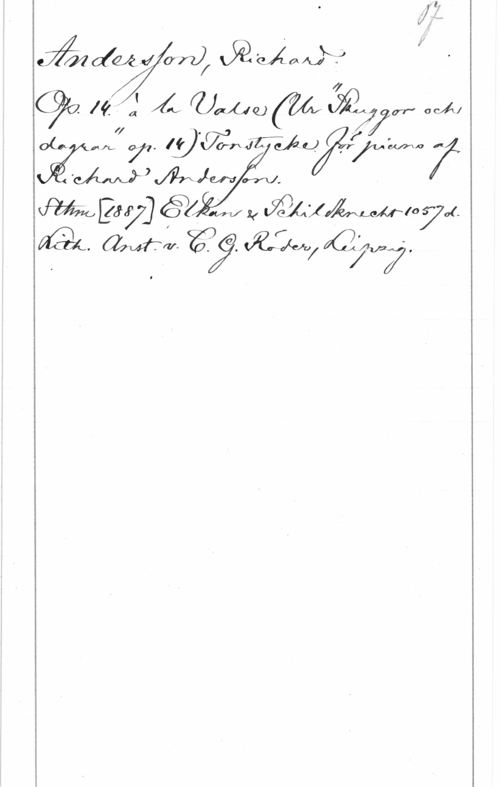 Andersson, Richard.
Op. 14. à la Valse (Ur "Skuggor och
dagrar" op. 14) Tonstycke för piano af
Richard Andersson.
Sthm [1887] Elkan & Schildknecht 1057 d.
Lith. Anst. v. C. G. Röder, Leipzig.